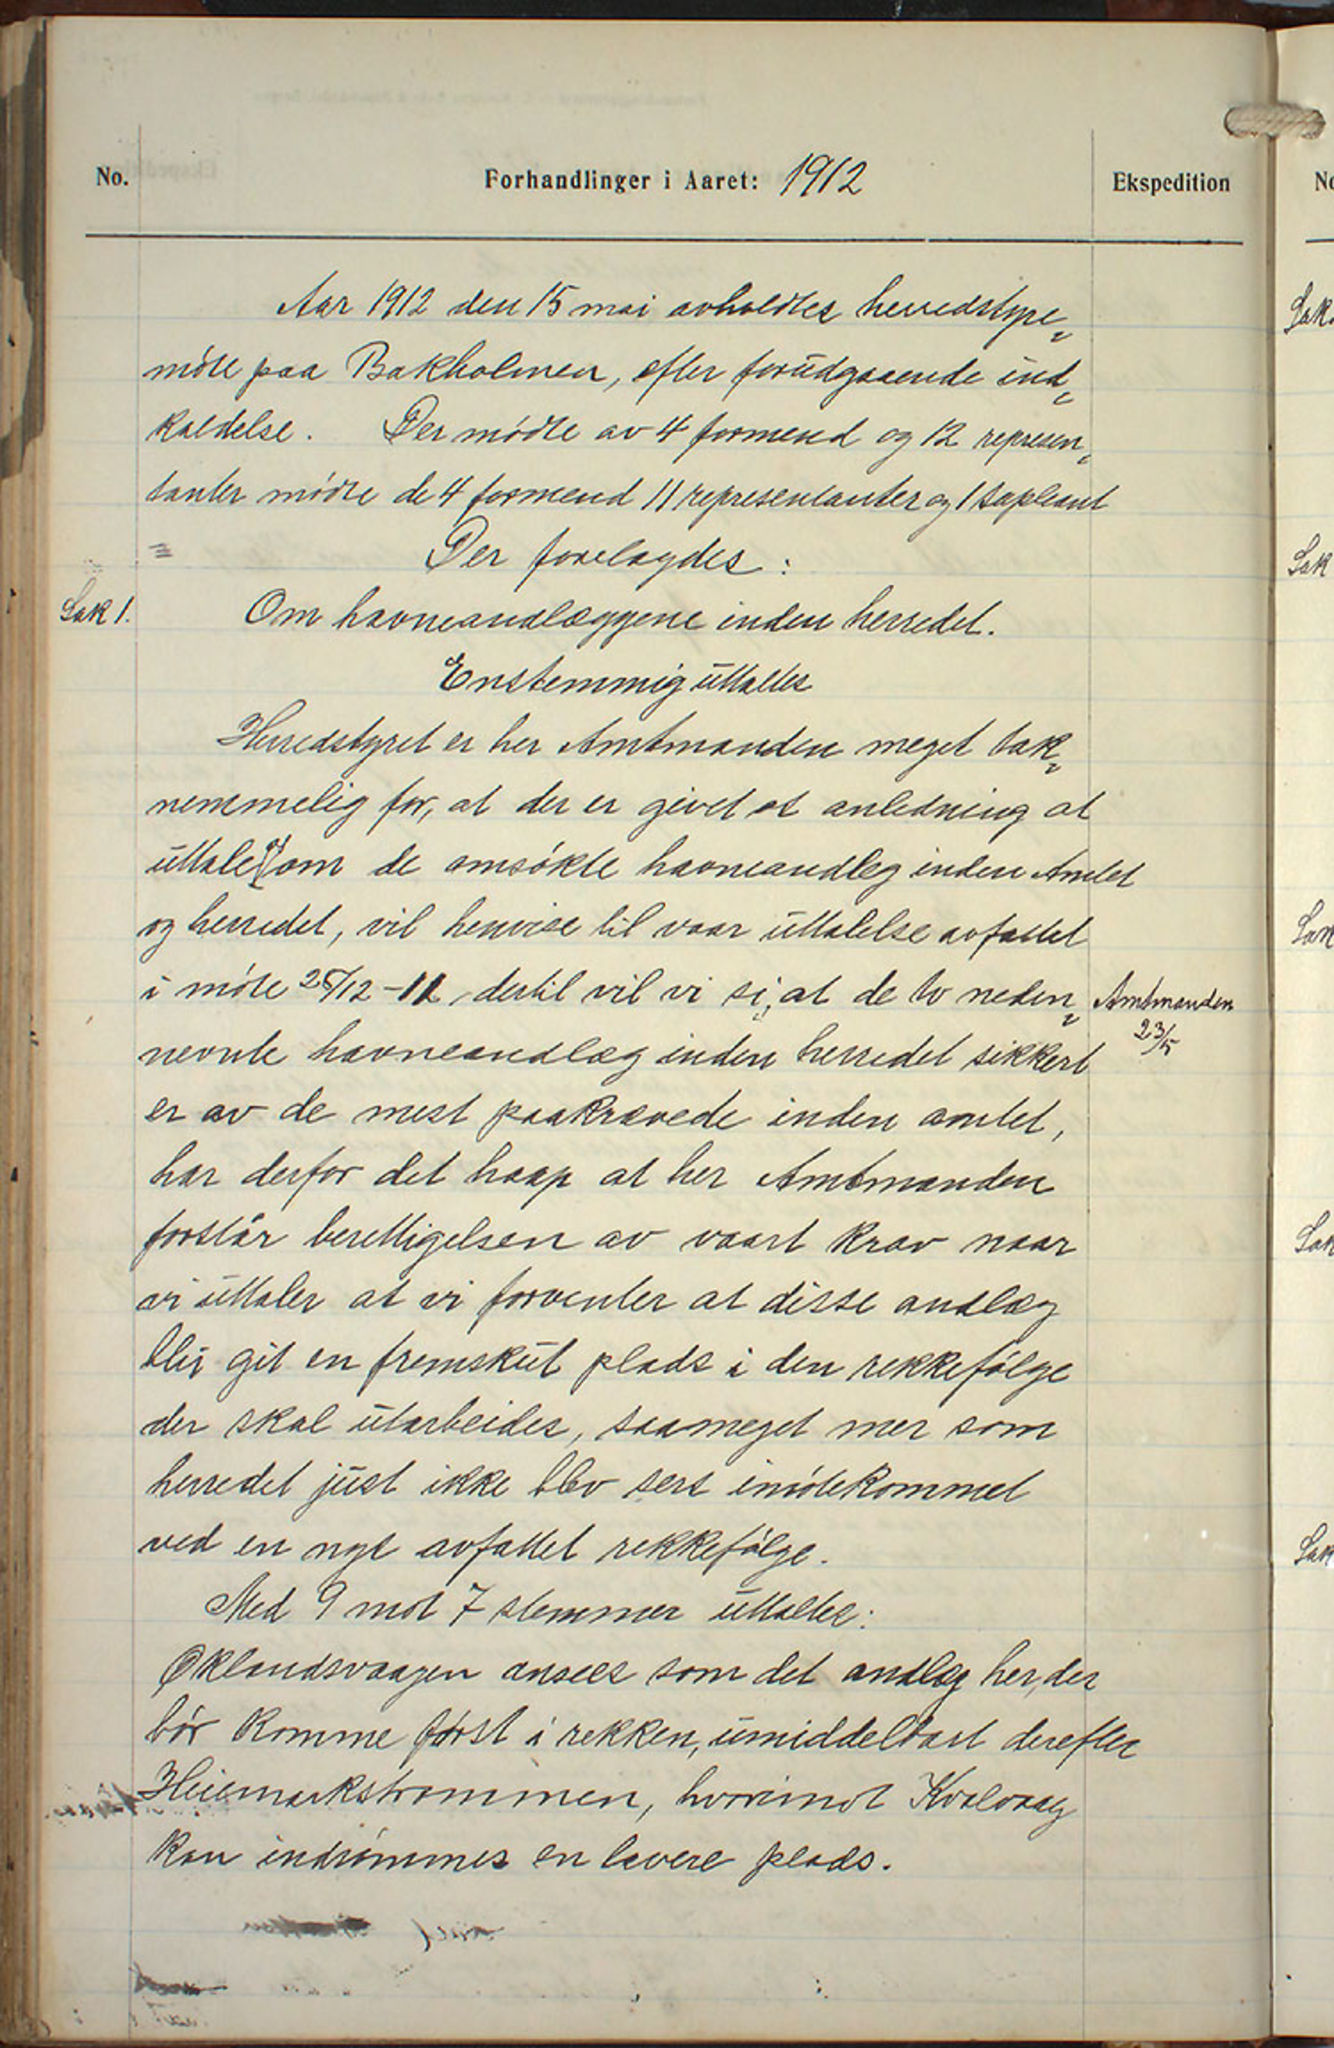 No. Forhandlinger i Aaret: 1912 Ekspedition
Aar 1912 den 15 mai avholdtes herredstyre„
möte paa Bakholmen, efter forudgaaende ind„
kaldelse. Der mødte av 4 formend og 12 represen„
tanter mødte de 4 formend 11 representanter og 1 supleant
Der forelagdes:
Sak 1. Om havneandlæggene inden herredet.
Enstemmig uttaltes
Herredstyret er her Amtmanden meget tak„
nemmelig for, at der er givet os anledning at
uttale os om de omsökte havneandleg inden Amtet
og herredet, vil henvise til vaar uttalelse avfattet
i möte 28/12-11, dertil vil vi si, at de to neden„
nevnte havneandlæg inden herredet sikkert
er av de mest paakrævede inden amtet,
har derfor det haap at her Amtmanden
forstår berettigelsen av vaart krav naar
vi uttaler at vi forventer at disse andlæg
blir git en fremskut plads i den rekkefölge
der skal utarbeides, saameget mer som
herredet just ikke blev sers imötekommet
ved en nys avfattet rekkefölge.
Med 9 mot 7 stemmer uttaltes:
Øklandsvaagen ansees som det andlæg her, der
bör komme först i rekken, umiddelbart derefter
Heiemarkstrommen, hvorimot Kvalvaag
kan indrömmes en lavere plads.
Amtmanden
23/5
No
Sak
Sak
Sak
Sak
Sak